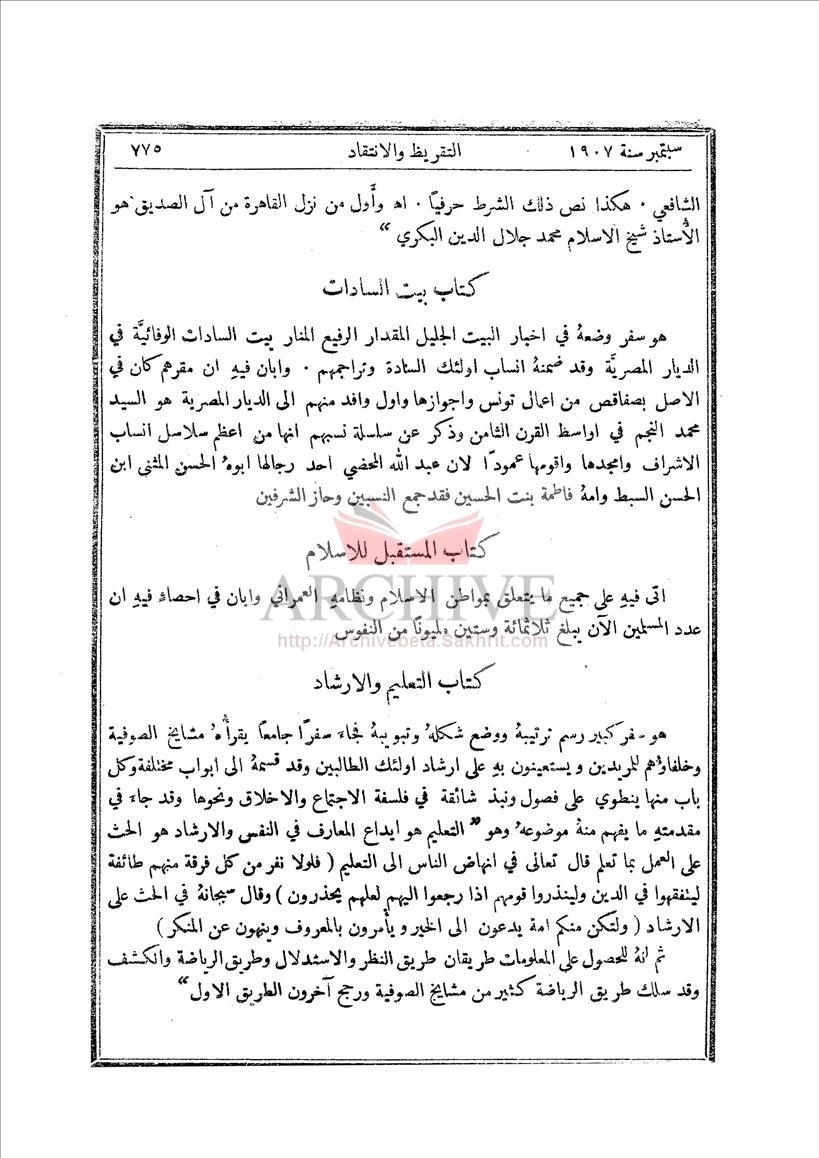 سبتمبر سنة ١٩٠٧ التقريظ والانتقاد ٧٧٥
الشافعي . هكذا نص ذلك الشرط حرفياً . اه وأَول من نزل القاهرة من آل الصديق هو
الأُستاذ شيخ الاسلام محمد جلال الدين البكري "
كتاب بيت السادات
هو سفر وضعهُ في اخبار البيت الجليل المقدار الرفيع المنار بيت السادات الوفائيَّة في
الديار المصريَّة وقد ضمنهُ انساب اولئك السادة وتراجمهم . وابان فيهِ ان مقرهم كان في
الاصل بصفاقص من اعمال تونس واجوازها واول وافد منهم الى الديار المصرية هو السيد
محمد النجم في اواسط القرن الثامن وذكر عن سلسلة نسبهم انها من اعظم سلاسل انساب
الاشراف وامجدها واقومها عموداً لان عبد الله المحضي احد رجالها ابوهُ الحسن المثنى ابن
الحسن السبط وامهُ فاطمة بنت الحسين فقد جمع النسبين وحاز الشرفين
كتاب المستقبل للاسلام
ARCHIVE
اتى فيهِ على جميع ما يتعلق بمواطن الاسلام ونظامهِ العمراني وابان في احصاءٍ فيهِ ان
عدد المسلمين الآن يبلغ ثلاثمائة وستين مليوناً من النفوس
http://Archivebeta.Sakhrit.com
كتاب التعليم والارشاد
هو سفر كبير رسم ترتيبهُ ووضع شكلهُ وتبويبهُ فجاءَ سفراً جامعاً يقرأُهُ مشايخ الصوفية
وخلفاؤهم للمريدين ويستعينون بهِ على ارشاد اولئك الطالبين وقد قسمهُ الى ابواب مختلفة وكل
باب منها ينطوي على فصول ونبذ شائقة في فلسفة الاجتماع والاخلاق ونحوها وقد جاءَ في
مقدمتهِ ما يفهم منهُ موضوعهُ وهو " التعليم هو ايداع المعارف في النفس والارشاد هو الحث
على العمل بما تعلم قال تعالى في انهاض الناس الى التعليم ( فلولا نفر من كل فرقة منهم طائفة
ليتفقهوا في الدين ولينذروا قومهم اذا رجعوا اليهم لعلهم يحذرون ) وقال سبحانهُ في الحث على
الارشاد ( ولتكن منكم امة يدعون الى الخير ويأمرون بالمعروف وينهون عن المنكر )
ثم انهُ للحصول على المعلومات طريقان طريق النظر والاستدلال وطريق الرياضة والكشف
وقد سلك طريق الرياضة كثير من مشايخ الصوفية ورجح آخرون الطريق الاول "